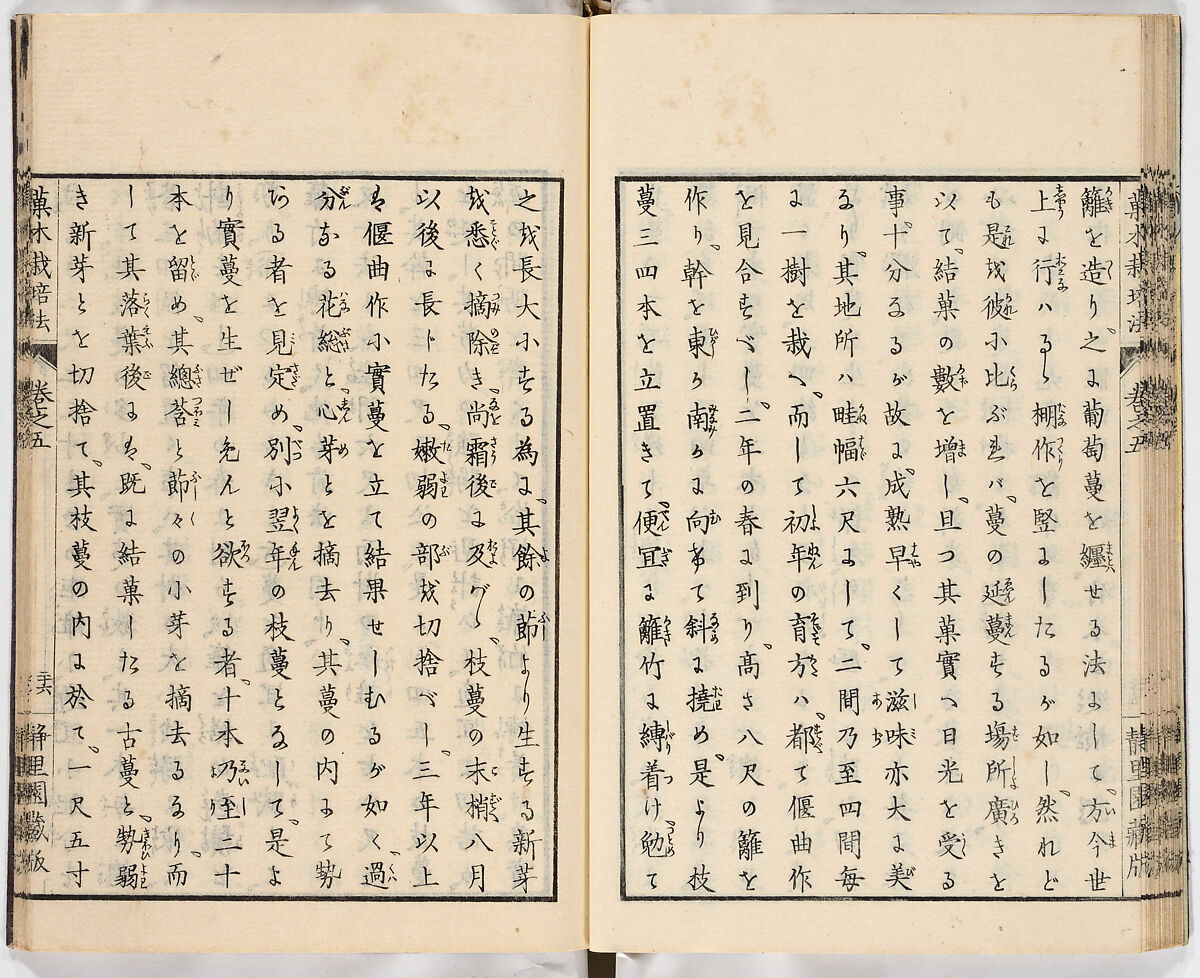 籬を造り、之に葡萄蔓を纒せる法にして、方今世
上に行ハるゝ棚作を竪にしたるが如し、然れど
も是を彼に比ぶれバ、蔓の延蔓する塲所廣きを
以て、結菓の數を増し、且つ其菓實ヘ日光を受る
事、十分なるが故に、成熟早くして滋味亦大に美
なり、其地所ハ畦幅六尺にして、二間乃至四間毎
に一樹を栽ヘ、而して初年の育方ハ、都て偃曲作
を見合すべし、二年の春に到り、高さ八尺の籬を
作り、幹を東か南かに向けて斜に撓め、是より枝
蔓三四本を立置きて、便冝に籬竹に縛着け勉て
之を長大にする為に、其餘の節より生する新芽
を悉く摘除き、尚霜後に及び、枝蔓の末梢八月
以後に長じたる、嫩弱の部を切捨べし、三年以上
は偃曲作に實蔓を立て結果せしむるが如く、過
分なる花總と、心芽とを摘去り、其蔓の内にて勢
ある者を見定め、別に翌年の枝蔓となして、是よ
り實蔓を生ぜしめんと欲する者、十本乃至二十
本を留め、其總莟と節々の小芽を摘去るなり、而
して其落葉後には、既に結菓したる古蔓と、勢弱
き新芽とを切捨て、其枝蔓の内に於て、一尺五寸
菓木栽培法
卷之五
静里園藏版
菓木栽培法
卷之五
静里園藏版